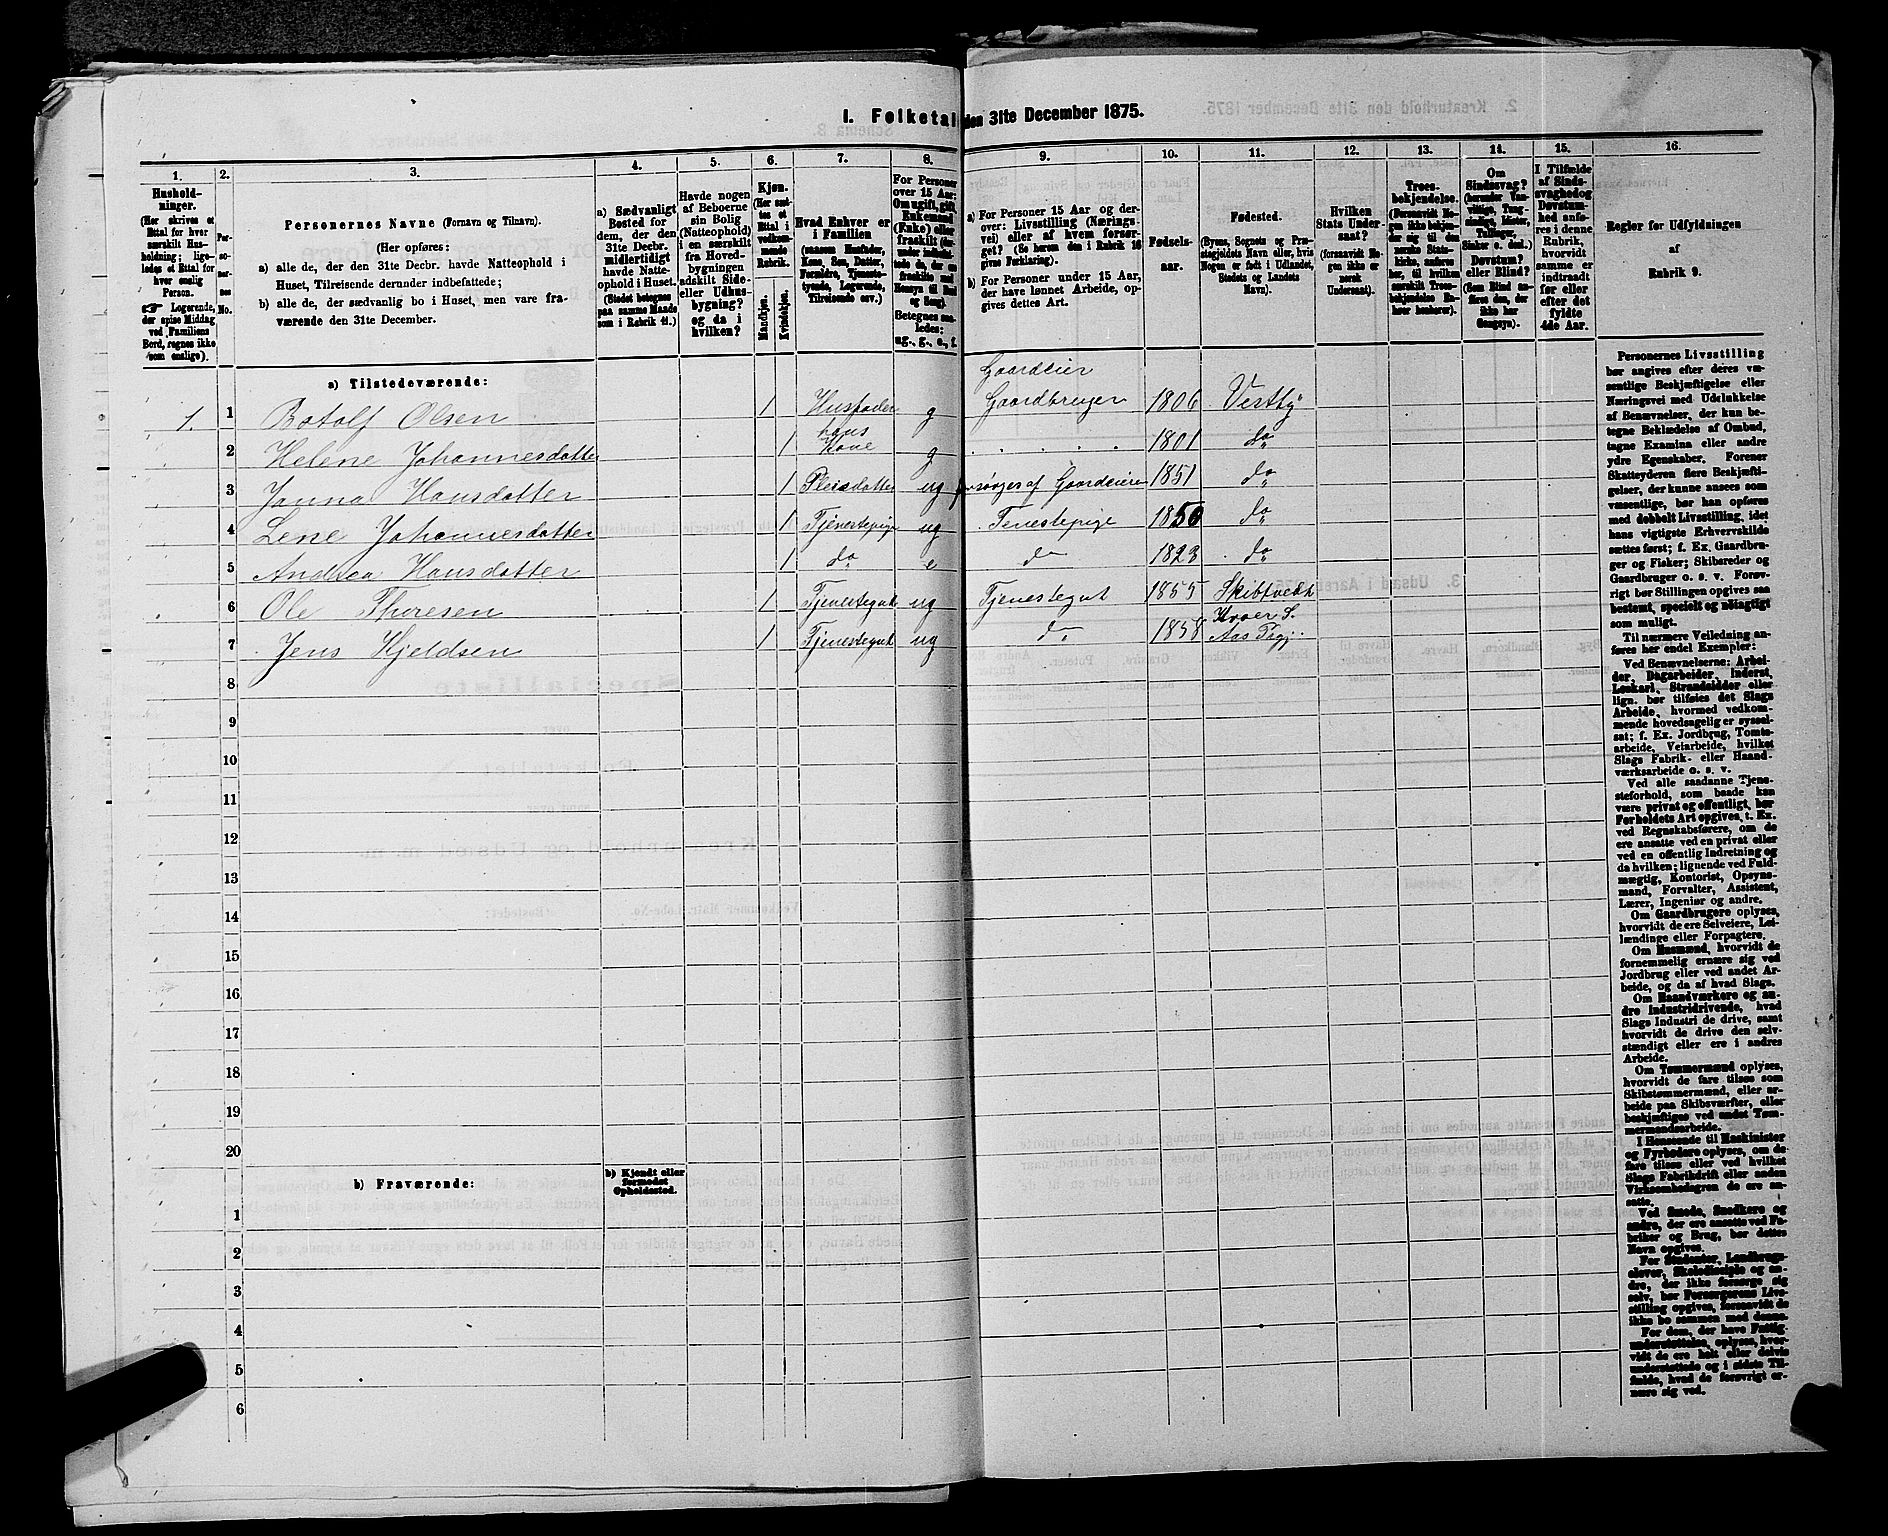 I. Folketal den 31te December 1875.
1. 2. 3. 4. 5. 6. 7. 8. 9. 10. 11. 12. 13. 14. 15. 16.
Hushold-
ninger.
(Her skrives et
Ettal for hver
særskilt Hus-
holdning; lige-
ledes et Ettal for
hver enslig
Person.
☞ Logerende,
der spise Middag
ved Familiens
Bord, regnes ikke
som enslige).
Per-
soner-
nes
No.
Personernes Navne (Fornavn og Tilnavn).
(Her opføres:
a) alle de, der den 31te Decbr. havde Natteophold i
Huset, Tilreisende derunder indbefattede;
b) alle de, der sædvanlig bo i Huset, men vare fra-
værende den 31te December.
a) Sædvanligt
Bosted for
dem, der den
31te Decbr.
midlertidigt
havde Natte-
ophold i Huset.
(Stedet betegnes
paa samme Maade
som i Rubrik 11.)
Havde nogen
af Beboerne
sin Bolig
(Natteophold)
i en særskilt
fra Hoved-
bygningen
adskilt Side-
eller Udhus-
bygning?
og da i
hvilken?
Kjøn.
(Her sæt-
tes et
Ettal i
vedkom-
mende
Rubrik.
Mandkjøn.
Kvindekjøn.
Hvad Enhver er
i Familien
(saasom Husfader,
Kone, Søn, Datter,
Forældre, Tjeneste-
tyende, Logerende,
Tilreisende osv.)
For Personer
over 15 Aar:
Om ugift, gift,
Enkemand
(Enke) eller
fraskilt
Betegnes saa-
ledes:
ug., g., e., f.
a) For Personer 15 Aar og der-
over: Livsstilling (Nærings-
vei) eller af hvem forsør-
get? (Se herom den i Rubrik 16
givne Forklaring).
b) For Personer under 15 Aar,
der have lønnet Arbeide, op-
gives dettes Art.
Fødsels-
aar.
Fødested.
(Byens, Sognets og Præ-
stegjeldets Navn eller, hvis
Nogen er født i Udlandet,
Stedets og Landets
Navn).
Hvilken
Stats Under-
saat?
(forsaavidt No-
gen ikke er
norsk
Undersaat).
Troes-
bekjendelse.
(Forsaavidt No-
gen ikke bekjen-
der sig til den
norske Stats-
kirke, anføres
her, til hvilken
særskilt Troes-
bekjendelse Ha-
hver henhører).
Om
Sindssvag?
Døvstum?
eller Blind?
(Som Blind
anføres den,
der ikke har
Gangsyn).
I Tilfælde
af Sinds-
svaghed og
Døvstum-
hed anfø-
res i denne
Rubrik,
hvorvidt
samme er
indtraadt
før eller
efter det
fyldte
4de Aar.
Regler for Udfyldningen
af
Rubrik 9.
a) Tilstedeværende:
Gaardeier
1. 1 Botolf Olsen 1 Husfader g Gaardbruger 1806 Vestby
hans
2 Helene Johannesdatter 1 Kone g 1801 do
3 Janna Hansdatter 1 Pleiedatter ug forsørges af Gaardeieren 1851 do
4 Lene Johannesdatter 1 Tjenestepige ug Tenestepige 1850 do
5 Andrea Hansdatter 1 do e do 1823 do
6 Ole Thoresen 1 Tjenestegut ug Tjenestegut 1855 Skibtvedt
Kroer S.
7 Jens Kjeldsen 1 Tjenestegut ug do 1858 Aas Pgj.
8
9
10
11
12
13
14
15
16
17
18
19
20
b) Fraværende:
b) Kjendt eller
formodet
Opholdssted.
1
2
3
4
5
6
Personernes Livsstilling
bør angives efter deres væ-
sentlige Beskjæftigelse eller
Næringsvei med Udelukkelse
af Benævnelser, der kun be-
tegne Beklædelse af Ombud,
tagne Examina eller andre
ydre Egenskaber. Forener
Skatteyderen flere Beskjæfti-
gelser, der kunne ansees som
væsentlige, bør han opføres
med dobbelt Livsstilling, idet
hans vigtigste Erhvervskilde
sættes først; f. Ex. Gaardbru-
ger og Fisker; Skibsreder og
Gaardbruger o. s. v. Forøv-
rigt bør Stillingen opgives saa
bestemt, specielt og nøiagtigt
som muligt.
Til nærmere Veiledning an-
føres her endel Exempler:
Ved Benævnelserne: Arbei-
der, Dagarbeider, Inderst,
Løskarl, Strandsidder eller
lign. bør tilføies det Slags
Arbeide, hvormed vedkom-
mende hovedsagelig er syssel-
sat; f. Ex. Jordbrug, Tomte-
arbeide, Veiarbeide, hvilket
Slags Fabrik- eller Haand-
værksarbeide o. s. v.
Ved alle saadanne Tjene-
steforhold, som baade kan
være privat og offentligt, bør
Forholdets Art opgives, t. Ex.
ved Regnskabsførere, om de
ere ansatte ved en privat eller
ved en offentlig Indretning og
da hvilken; lignende ved Fuld-
mægtig, Kontorist, Opsyns-
mand, Forvalter, Assistent,
Lærer, Ingeniør og andre.
Om Gaardbrugere oplyses,
hvorvidt de ere Selveiere, Lei-
lændinge eller Forpagtere.
Om Husmænd, hvorvidt de
fornemmelig ernære sig ved
Jordbrug eller ved andet Ar-
beide, og da af hvad Slags.
Om Haandværkere og an-
dre Industridrivende, hvad
Slags Industri de drive, samt
hvorvidt de drive den selv-
stændigt eller ere i andres
Arbeide.
Om Tømmermænd oplyses,
hvorvidt de fare tilsøs som
Skibstømmermænd, eller ar-
beide paa Skibsværfter, eller
beskjæftiges ved andet Tøm-
mermandsarbeide.
I Henseende til Maskinister
og Fyrbødere oplyses, om de
fare tilsøs eller ved hvilket
Slags Fabrikdrift eller anden
Virksomhedsgren de ere an-
satte.
Ved Smede, Snedkere og
andre, der ere ansatte ved Fa-
briker og Brug, bør dettes
Navn opgives.
For Studenter, Landbrugs-
elever, Skoledisciple og an-
dre, der ikke forsørge sig
selv, bør Forsørgerens Livs-
stilling opgives, forsaavidt de
ikke bo sammen med denne.
For dem, der have Fattig-
understøttelse, oplyses, hvor-
vidt de ere helt eller delvis
understøttede og i sidste Til-
fælde, hvad de forøvrigt er-
nære sig ved.